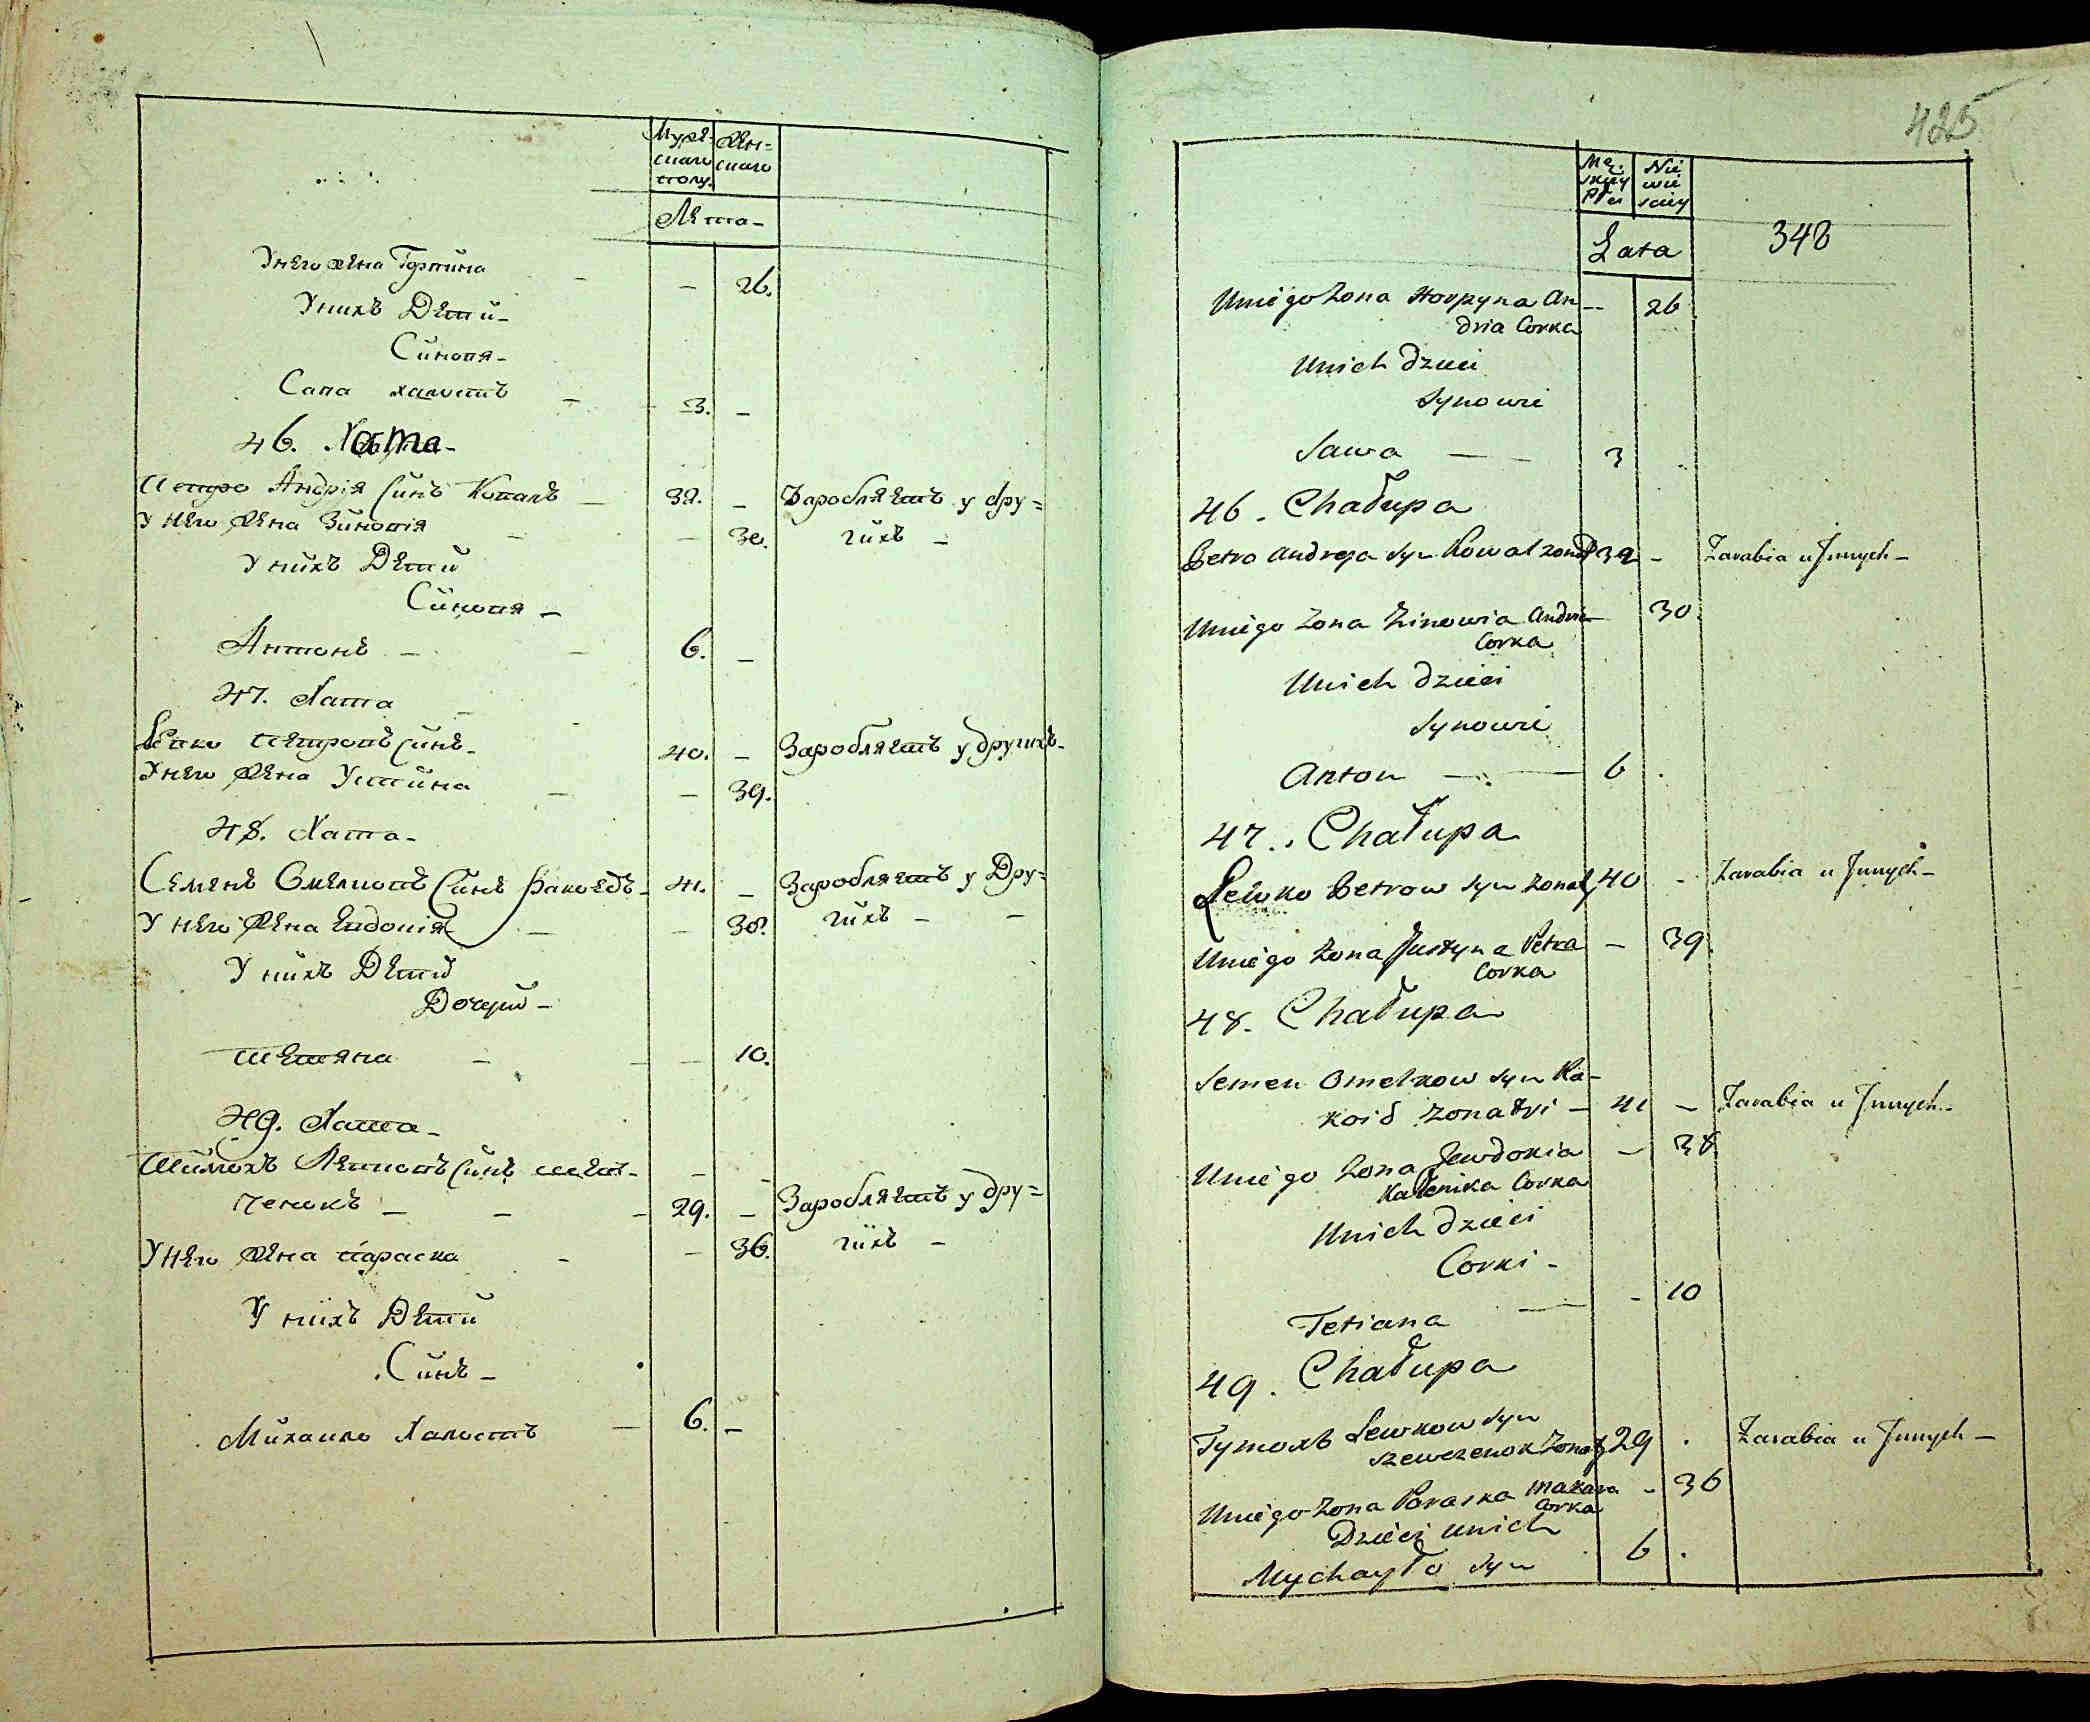 Муже-
скаго
полу.
Жен=
скаго
Лета-
У него жена Горпина - - 26.
У нихъ Дети-
Синовя-
Сава халостъ - 3. -
46. Хата-
Петро Андрія Синъ Ковалъ - 32. - Заробляетъ у дру=
гихъ -
У него Жена Зиновія - - 30.
У нихъ Дети
Синовя -
Антонъ - - 6. -
47. Хата -
Левко Петровъ Синъ- 40. - Заробляетъ у другихъ-
У него Жена Устина - - 39.
48. Хата-
Семенъ Омелковъ Синъ Ракоедъ- 41. - Заробляетъ у Дру=
гихъ - -
У него Жена Евдокія - - 38.
У нихъ Дети
Дочери -
Тетяна - - - 10.
49. Хата-
Тимохъ Левковъ Синъ Шев- - -
ченокъ - - - 29. - Заробляетъ у дру=
гихъ -
У него Жена Параска - - 36.
У нихъ Дети
Синъ -
Михайло Халостъ - 6. -
425
Mę
skiey
Płci
Nie
wie
sciey
Lata
348
Uniego Zona Horpyna An -- 26
dria Corka
Unich dzieci
Synowie
Sawa - - 3
46. Chałupa
Petro Andreja Syn Kowal zonat 32 - Zarabia u Innych -
Uniego Zona Zinowia Andria 30.
Corka
Unich dzieci
Synowie
Anton - - 6 .
47. Chałupa
Lewko Petrow Syn Zonaty 40 - Zarabia u Innych -
Uniego Zona Justyna Petra - 39.
Corka
48. Chałupa
Semen Omelkow Syn Ra-
koid zonaty - 41 - Zarabia u Innych -
Uniego Zona Jewdokia - 38
Kalenika Corka
Unich dzieci
Corki -
Tetiana - - 10
49. Chałupa
Tymoxъ Lewkow Syn
Szewczenok Zonaty 29 . Zarabia u Innych -
Uniego Zona Paraska Makara - 36
Corka
Dzieci unich
Mychayło Syn 6 .